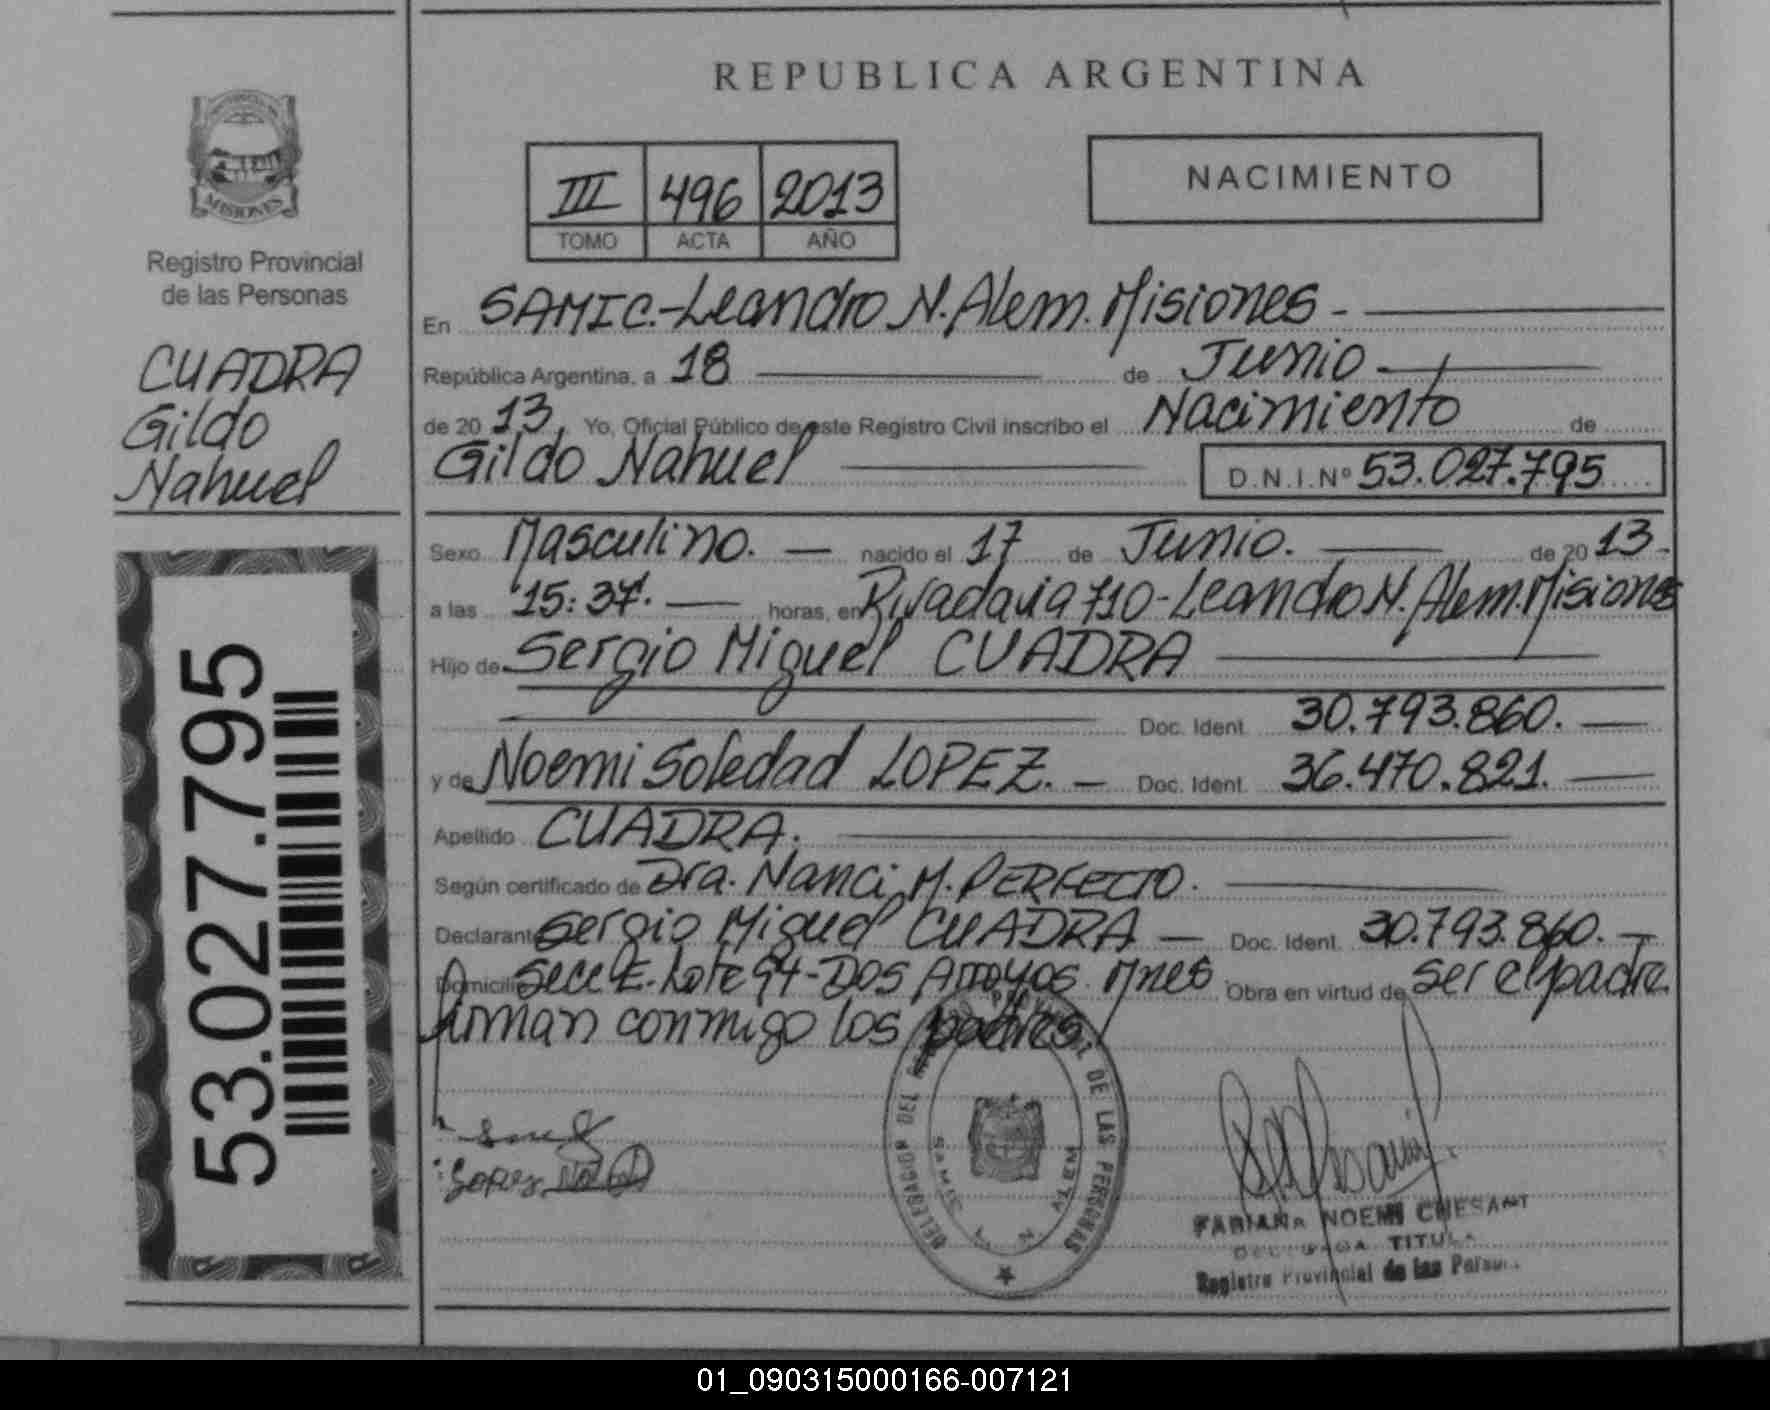 REPUBLICA ARGENTINA
NACIMIENTO
III 496 2013
TOMO ACTA AÑO
MISIONES
Registro Provincial
de las Personas
CUADRA
Gildo
Nahuel
53.027.795
En SAMIC.-Leandro N. Alem. Misiones -
República Argentina, a 18 de Junio
de 20 13, Yo, Oficial Público de este Registro Civil inscribo el Nacimiento de
Gildo Nahuel D.N.I.Nº 53.027.795
Sexo Masculino. nacido el 17 de Junio. de 20 13-
a las 15:37. horas, en Rivadavia 710-Leandro N. Alem. Misiones
Hijo de Sergio Miguel CUADRA
Doc. Ident. 30.793.860.
y de Noemi Soledad LOPEZ. Doc. Ident. 36.470.821.
Apellido CUADRA.
Según certificado de Dra. Nanci M. PERFECTO.
Declarante Sergio Miguel CUADRA Doc. Ident. 30.793.860.
Domicilio Secc E. Lote 94-Dos Arroyos. Mnes Obra en virtud de ser el padre
firman conmigo los padres
Lopez
DELEGACION DEL DE LAS PERSONAS
SAMIC N. ALEM
FABIANA NOEMI CHESANI
TITULAR
Registro Provincial de las Personas
01_090315000166-007121